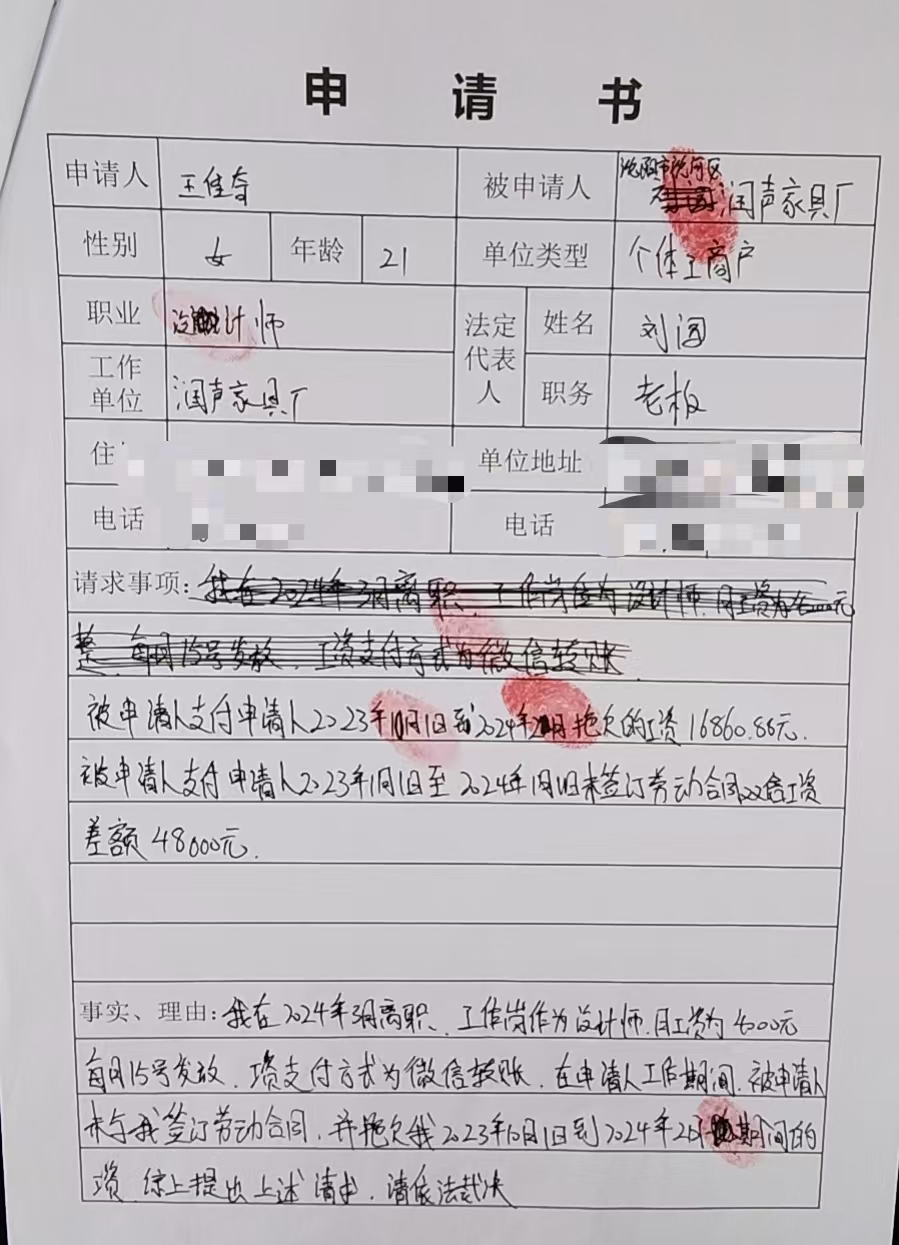 申请书
申请人 王佳奇 被申请人 沈阳市沈河区
润声家具厂
性别 女 年龄 21 单位类型 个体工商户
职业 计师 法定代表人 姓名 刘润
工作单位 润声家具厂 职务 老板
住 单位地址
电话 电话
请求事项: 我在2024年3月离职、工作岗位为设计师,月工资为4000元
整、每月15号发放、工资支付方式为微信转账
被申请人支付申请人2023年10月1日到2024年2月拖欠的工资16860.86元.
被申请人支付申请人2023年1月1日至2024年1月1日未签订劳动合同双倍工资
差额48000元.
事实、理由: 我在2024年3月离职、工作岗作为设计师,月工资为4000元
每月15号发放、工资支付方式为微信转账、在申请人工作期间、被申请人
未与我签订劳动合同、并拖欠我2023年10月1日到2024年2月期间的
工资、综上提出上述请求、请依法裁决